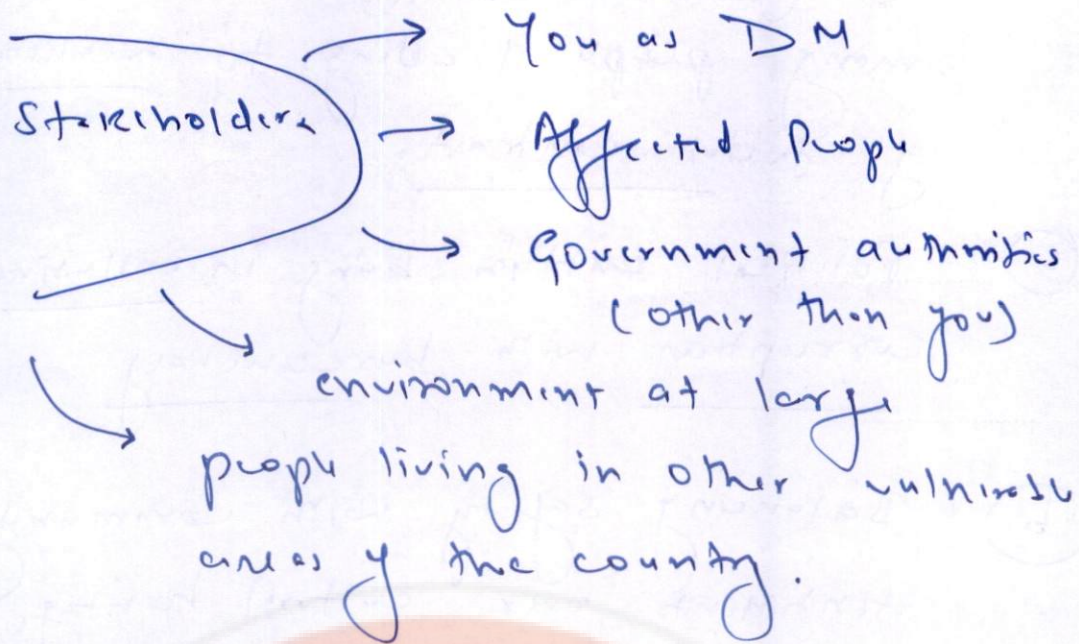 Stakeholders
You as DM
Affected People
Government authorities
(other than you)
environment at large
people living in other vulnerable
areas of the country.